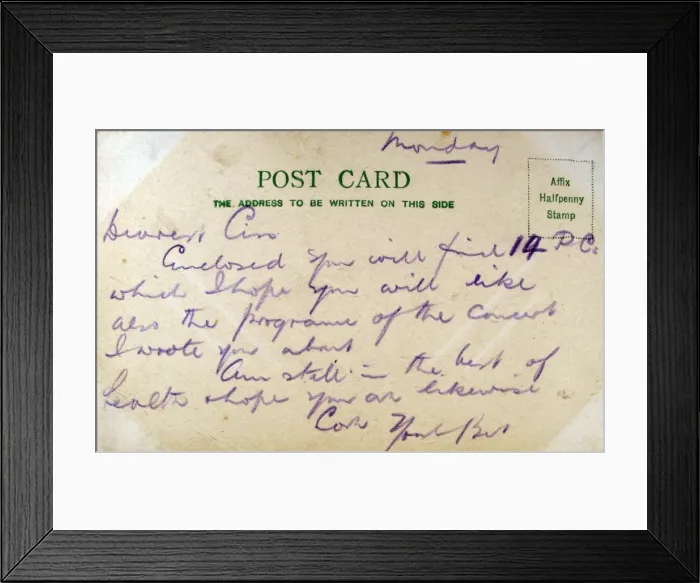 Monday
POST CARD
THE ADDRESS TO BE WRITTEN ON THIS SIDE
Affix
Halfpenny
Stamp
Dearest Ciss
Enclosed you will find 14 P.Cs
which I hope you will like
also the programe of the concert
I wrote you about
Am still in the best of
health & hope you are likewise
Bert